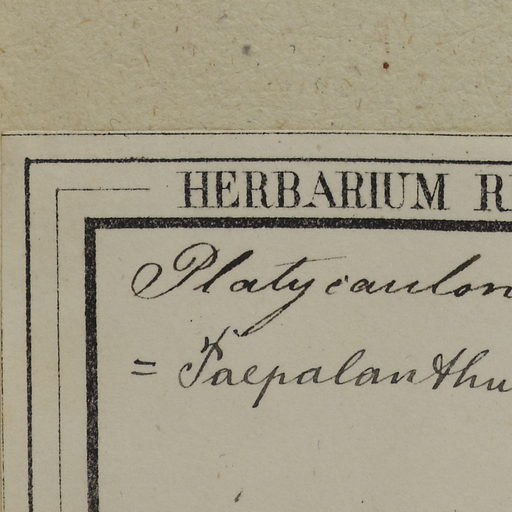 HERBARIUM R
Platycaulon
= Paepalanthu